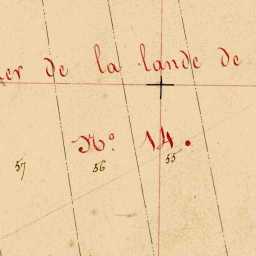 de la lande de
No. 14.
57 56 55